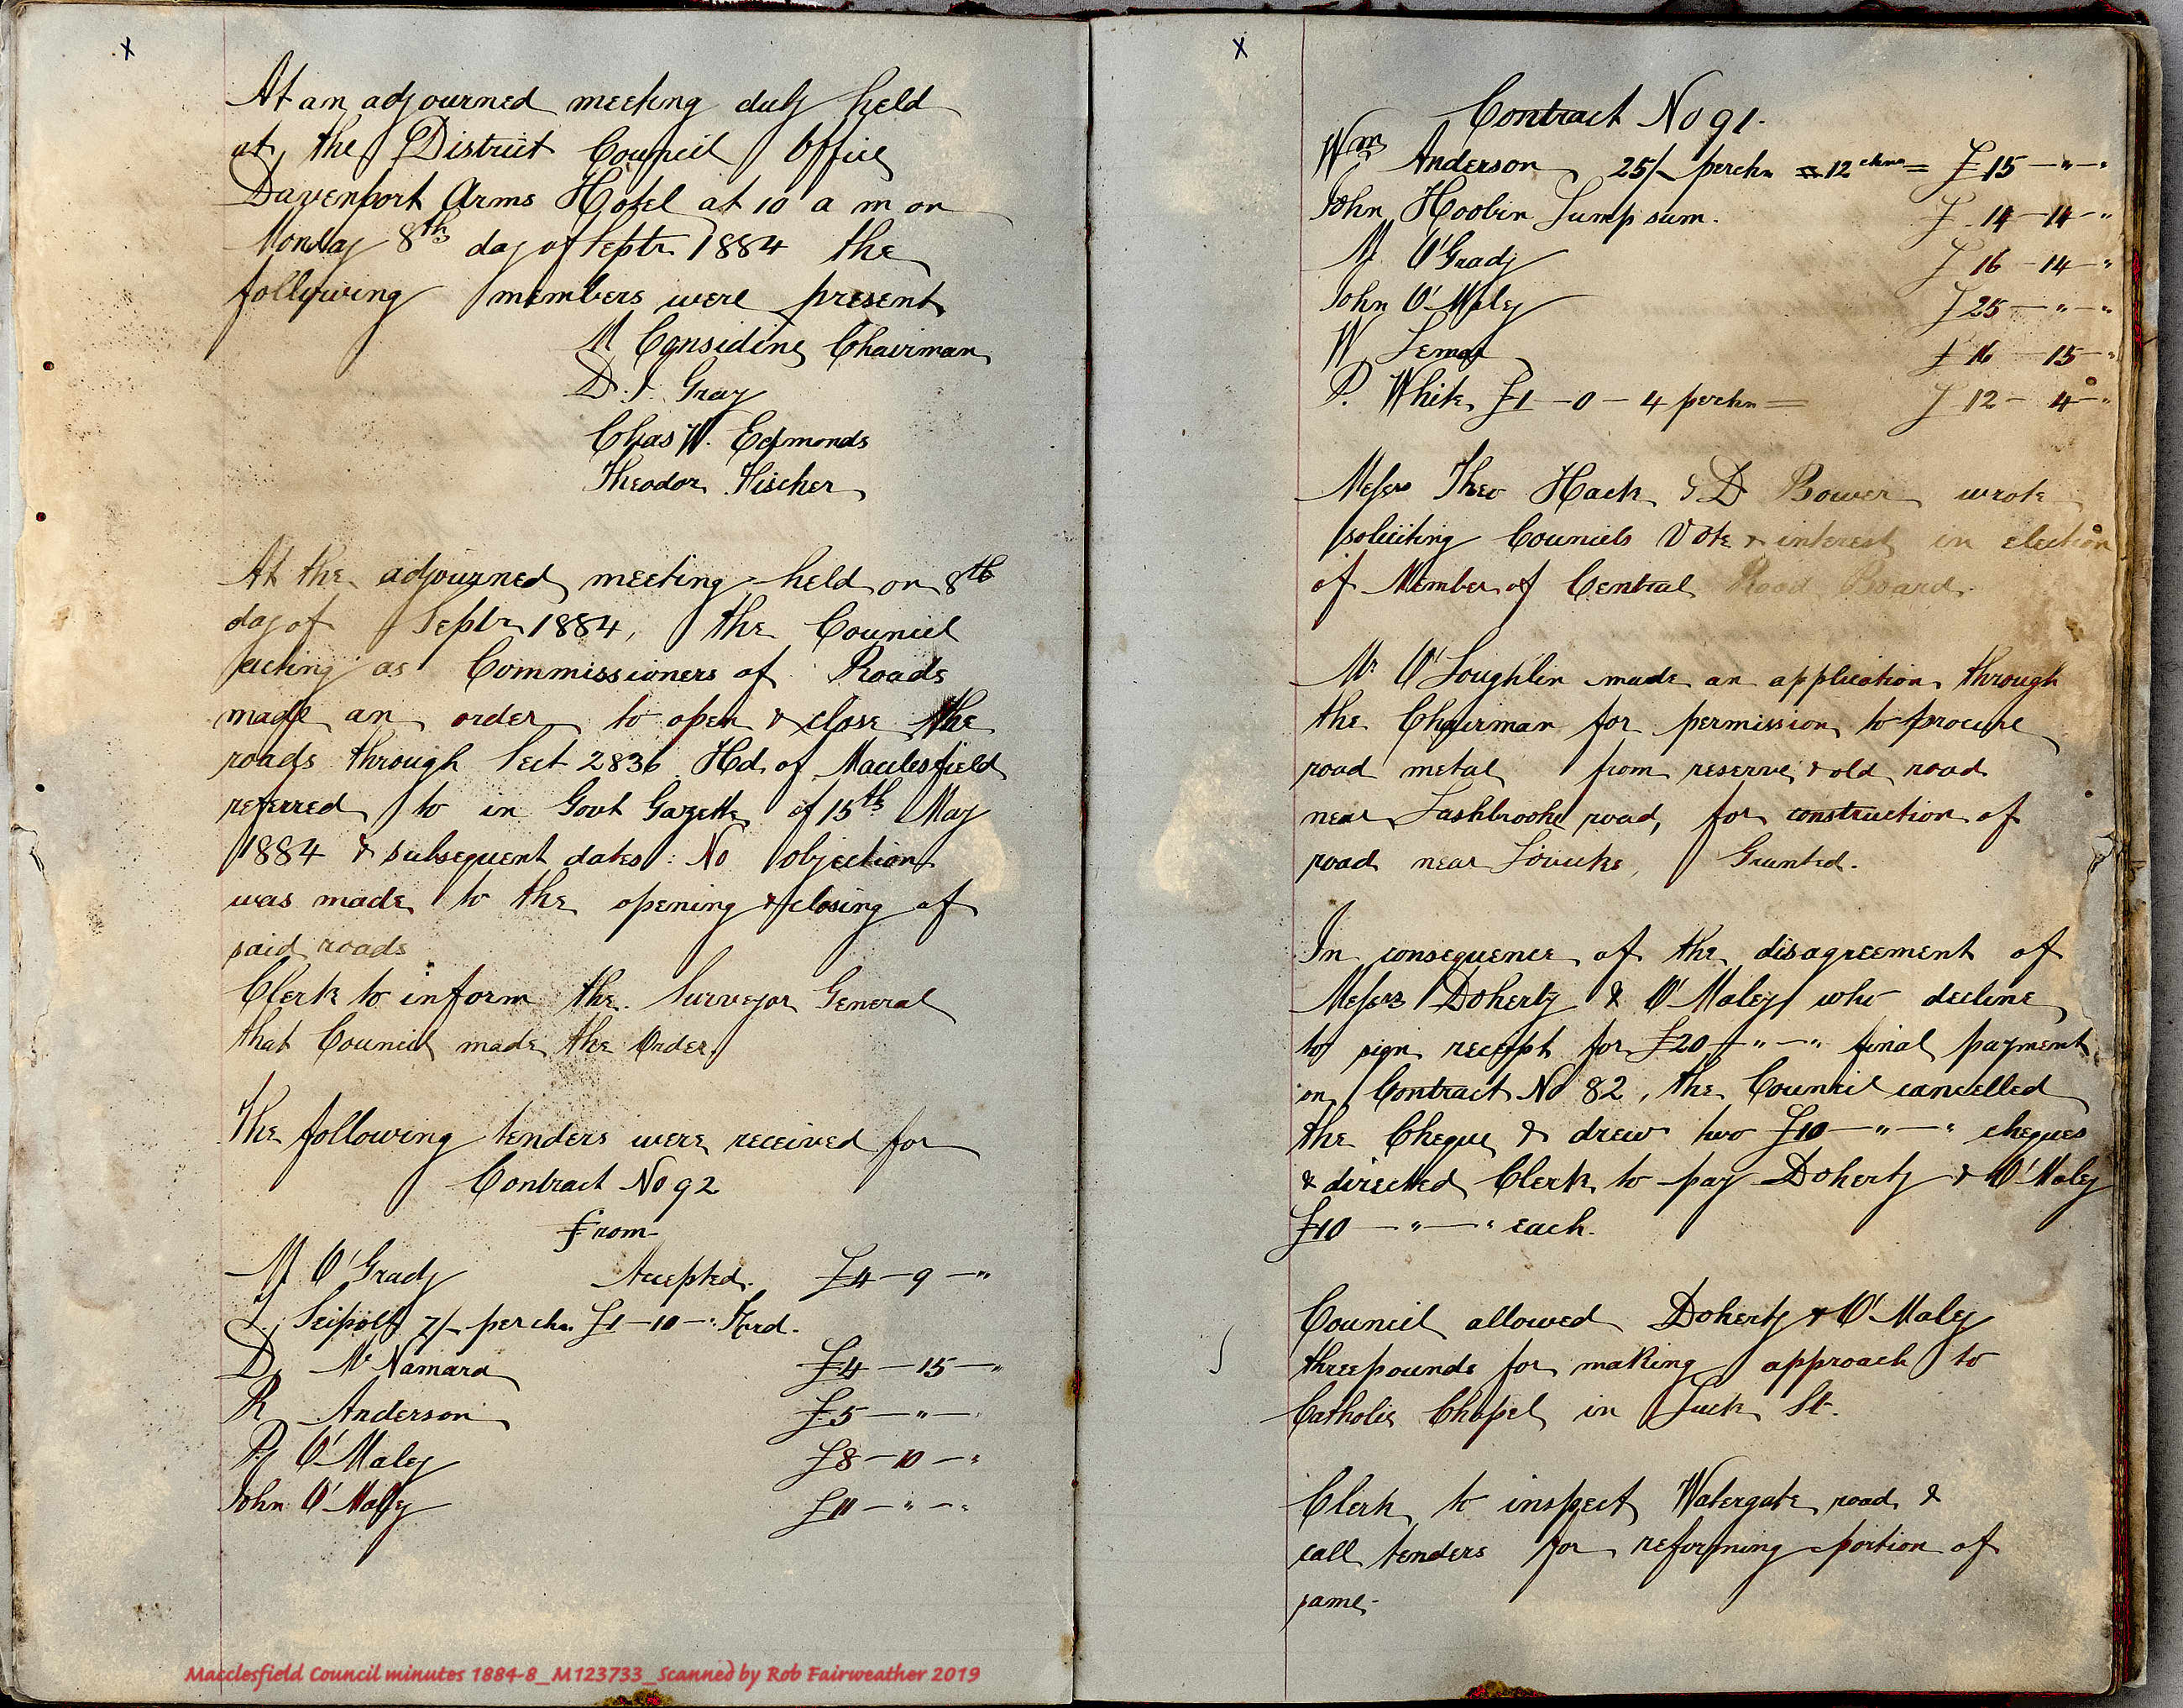 x
At an adjourned meeting duly held
at the District Council Office
Davenport Arms Hotel at 10 a m on
Monday 8th day of Septr 1884 the
following members were present
M Considine Chairman
D. J. Gray
Chas W. Edmonds
Theodor Fischer
At the adjourned meeting held on 8th
day of Septr 1884, the Council
acting as Commissioners of Roads
made an order to open & close the
roads through Sect 2836 Hd of Macclesfield
referred to in Govt Gazette of 15th May
1884 & subsequent dates: No objection
was made to the opening & closing of
said roads
Clerk to inform the Surveyor General
that Council made the Order.
The following tenders were received for
Contract No 92
from
M O'Grady Accepted. £4-9-"
Seipolt 7/- perchn £1-10-"
D. McNamara £4-15-"
R Anderson £5-"-
P. O'Maley £8-10-"
John O'Maley £11-"-"
Macclesfield Council minutes 1884-8_M123733_Scanned by Rob Fairweather 2019
x
Contract No 91.
Wm Anderson 25/- perchn = 12 chns = £15-"-"
John Hooben Lump sum. £14-14-"
M O'Grady £16-14-"
John O'Maley £25-"-"
W £16-15-"
P. White £1-0-4 perchn = £12-4-"
Messrs Theo Hack & D Bower wrote
soliciting Councils Vote & interest in election
of Member of Central Road Board.
Mr O'Loughlin made an application through
the Chairman for permission to procure
road metal from reserve & old road
near Lashbrooke road, for construction of
road near Granted.
In consequence of the disagreement of
Messrs Doherty & O'Maley who decline
to sign receipt for £20-"-" final payment
on Contract No 82, the Council cancelled
the Cheque & drew two £10-"-" cheques
& directed Clerk to pay Doherty & O'Maley
£10-"-" each.
Council allowed Doherty & O'Maley
three pounds for making approach to
Catholic Chapel in Luck St.
Clerk to inspect Watergate road &
call tenders for reforming portion of
same.